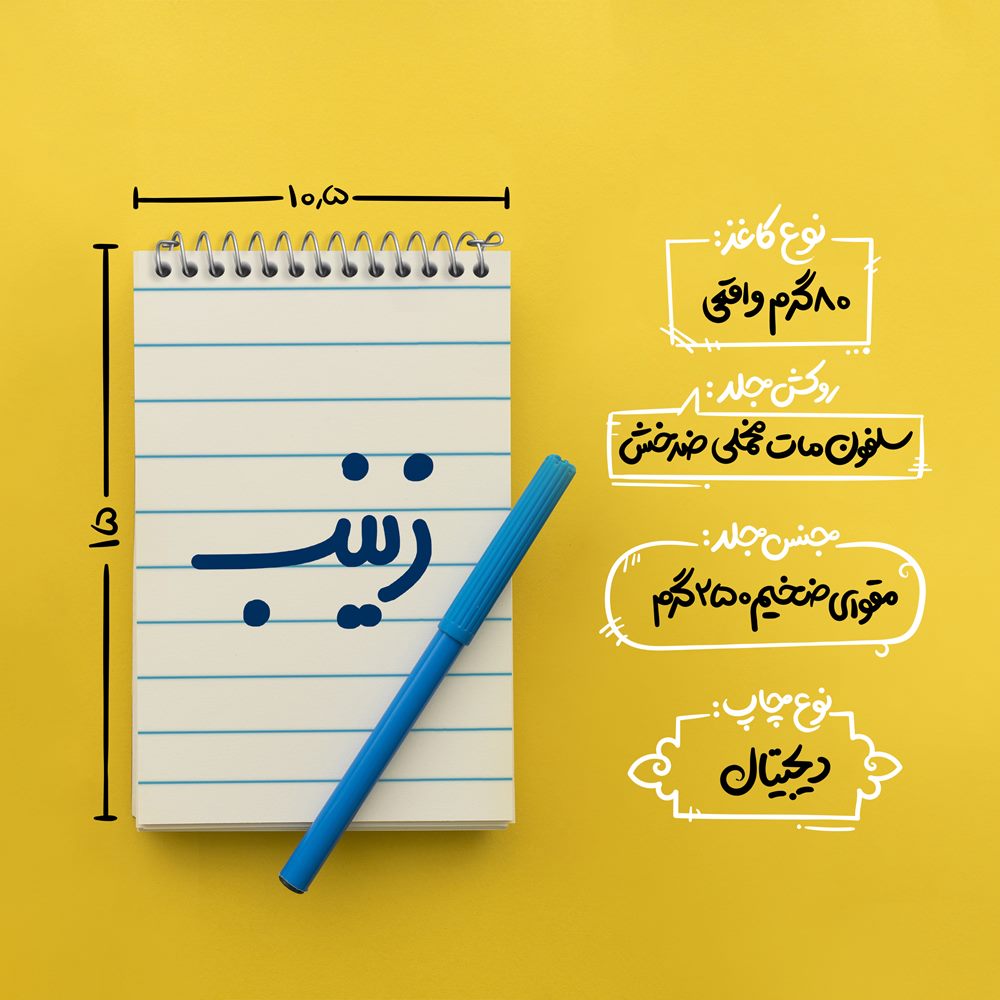 ۱۰,۵
۱۵
زینب
نوع کاغذ:
۸۰گرم واقعی
روکش جلد:
سلفون مات مخملی ضدخش
جنس جلد:
مقوای ضخیم ۲۵۰گرم
نوع چاپ:
دیجیتال